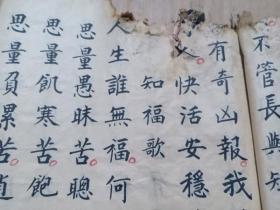 不管長與短
有奇凶報我
人快活安穩
知福歌
人生誰無福何
思量愚昧苦聰
思量飢寒苦飽
思量負累苦直